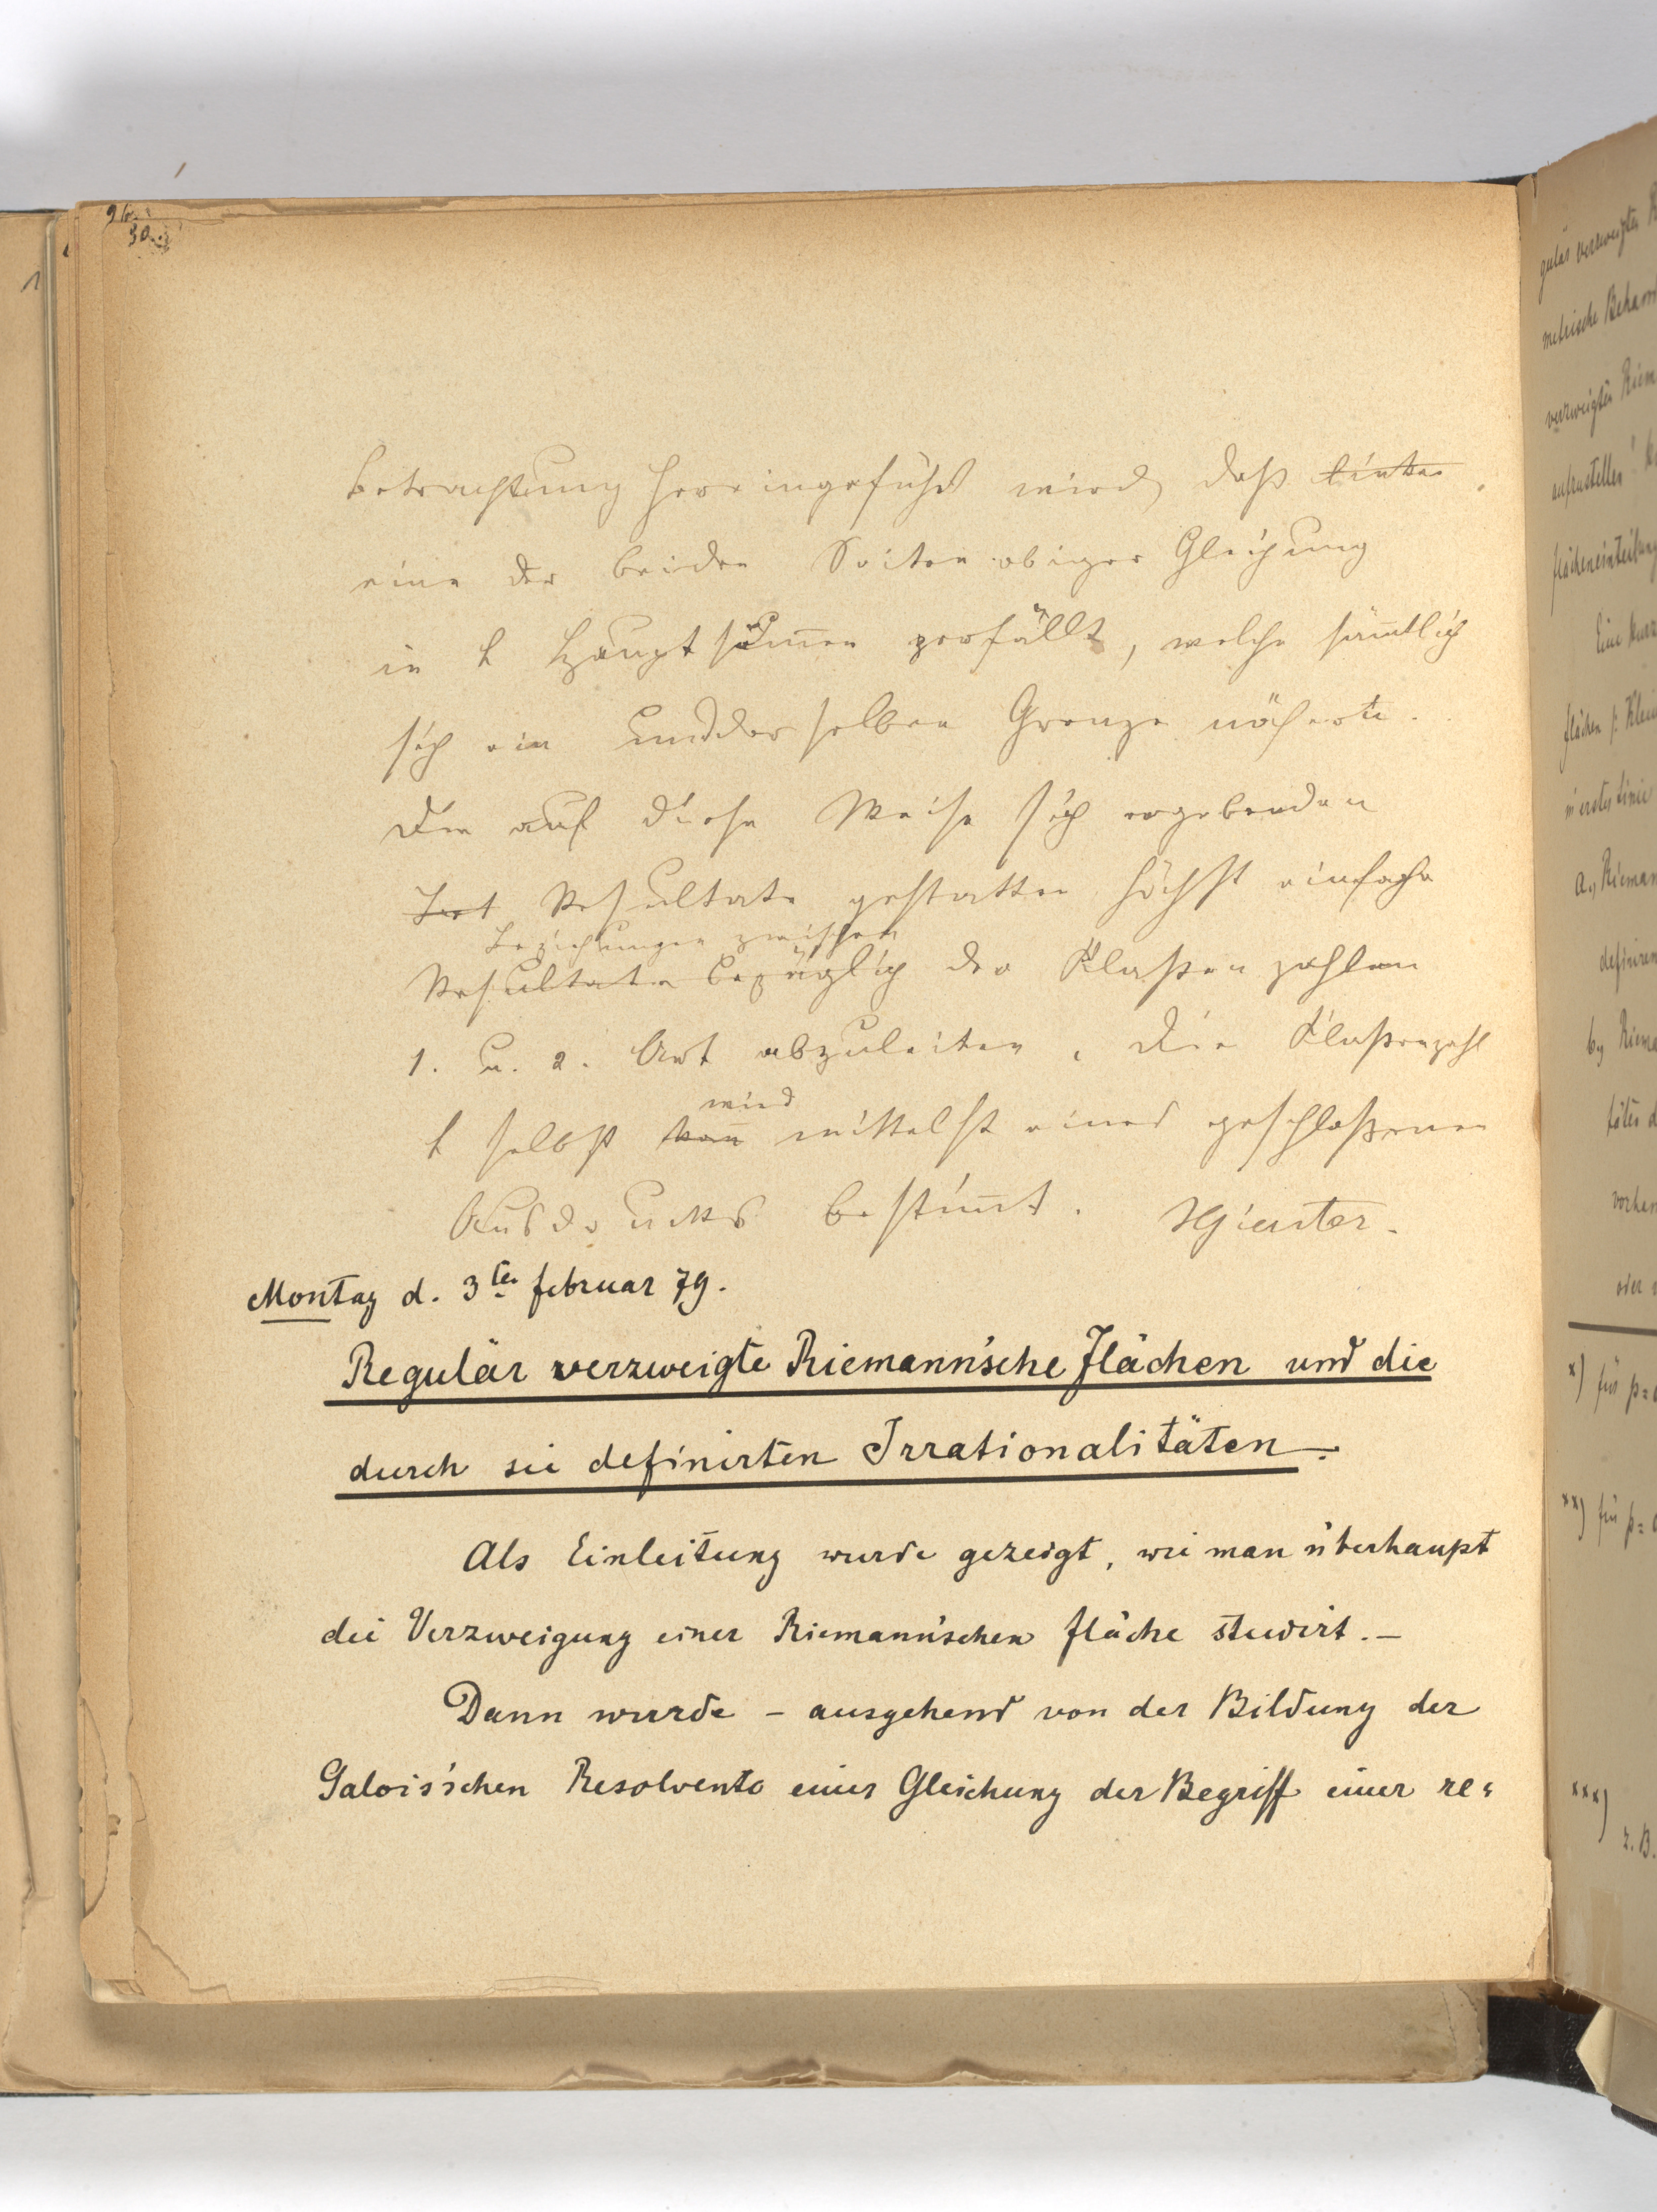 96.
30.
betrachtung hereingeführt wird, daß linker
eine der beiden Seiten obiger Gleichung
in h Hauptsummen zerfällt, welche sämtlich
sich ein und derselben Grenze nähern.
Die auf diese Weise sich ergebenden
Resultate gestatten höchst einfache
Beziehungen zwischen
Resultate bezüglich der Klaßenzahlen
1. u. 2. Art abzuleiten, die Klaßenzahl
wird
h selbst kann mittelst eines geschloßenen
Ausdrucks bestimmt. Gierster.
Montag d. 3ten februar 79.
Regulär verzweigte Riemann'sche Flächen und die
durch sie definirten Irrationalitäten.
Als Einleitung wurde gezeigt, wie man überhaupt
die Verzweigung einer Riemann'schen fläche studirt.–
Dann wurde – ausgehend von der Bildung der
Galois'schen Resolvente einer Gleichung der Begriff einer re=
gulär verzweigten
metrische
verzweigten
aufzustellen
flächeneinteilung
Eine kurz
flächen
in erster Linie
a., Rieman
definiren
b., Riema
vorhan
oder
x) für p=0
xx) für p=0
xxx)
z.B.